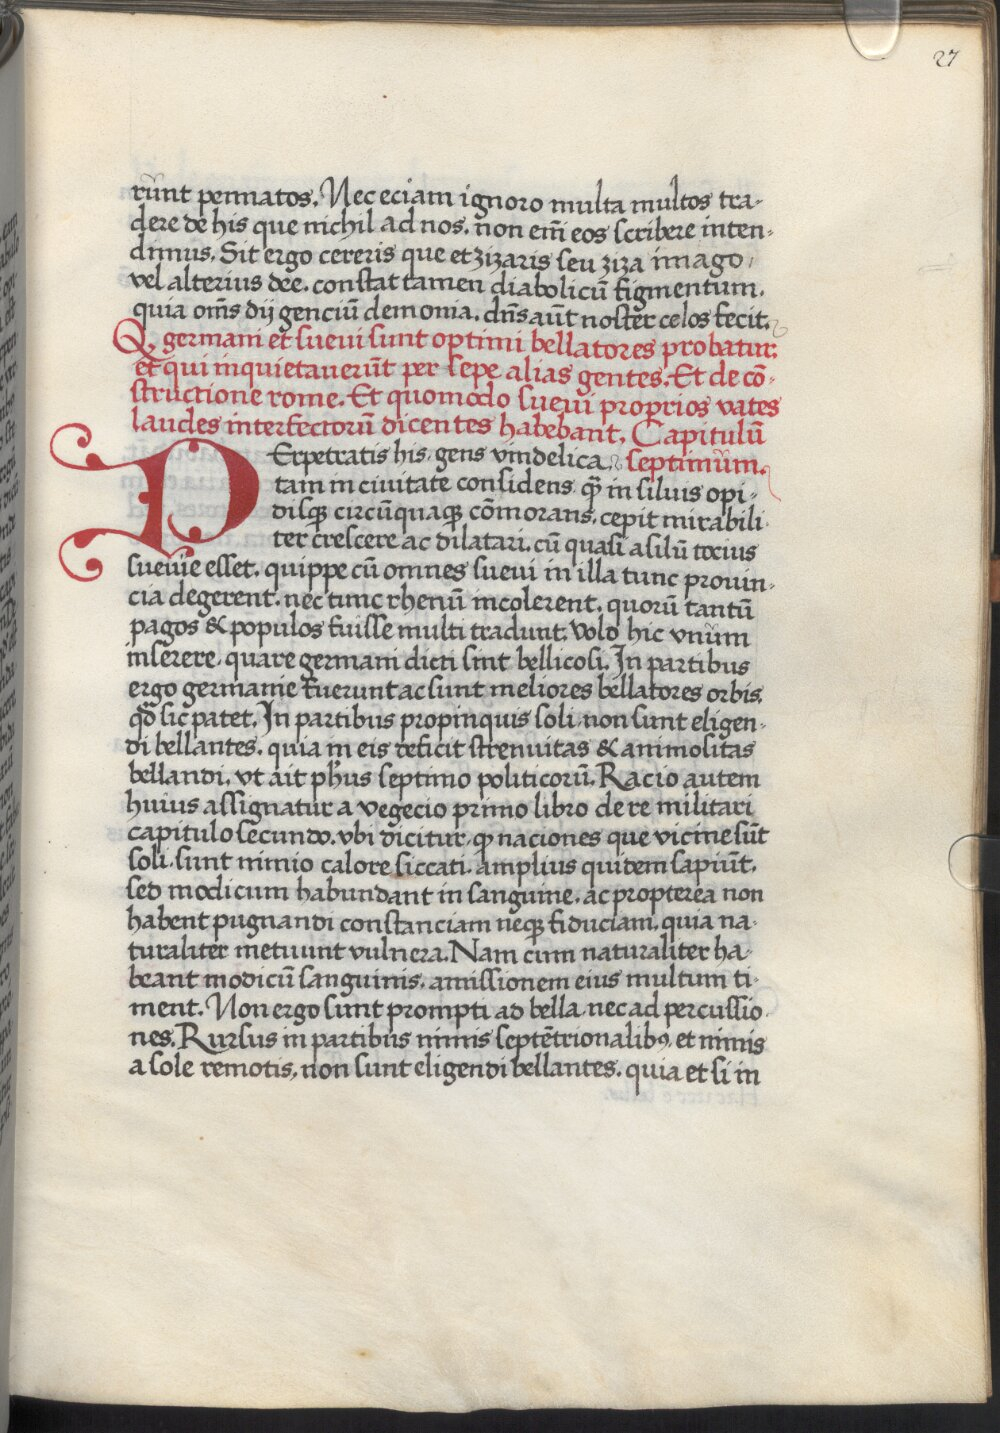 27
rūnt pennatos. Nec eciam ignoro multa multos tra-
dere de his que nichil ad nos. non em̄ eos scribere inten-
dimus. Sit ergo cereris que et zizaris seu ziza imago,
vel alterius dee. constat tamen diabolicū figmentum.
quia om̄s dij genciū demonia. dn̄s aūt noster celos fecit.
Q germani et sueui sunt optimi bellatores probatur:
et qui inquietauerūt per sepe alias gentes. Et de cō-
structione rome. Et quomodo sueui proprios vates
laudes interfectorū dicentes habebant. Capitulū
PErpetratis his. gens vindelica. septimūm.
tam in ciuitate considens qꝫ in siluis opi-
disqꝫ circūquaqꝫ cōmorans. cepit mirabili-
ter crescere ac dilatari. cū quasi asilū tocius
sueuie esset. quippe cū omnes sueui in illa tunc prouin-
cia degerent. nec tunc rhenū incolerent. quorū tantū
pagos & populos fuisse multi tradunt. Volo hic vnūm
inserere. quare germani dicti sint bellicosi. In partibus
ergo germanie fuerunt ac sunt meliores bellatores orbis.
qd̄ sic patet. In partibus propinquis soli non sunt eligen-
di bellantes. quia in eis deficit strenuitas & animositas
bellandi. vt ait ph̄us septimo politicorū. Racio autem
huius assignatur a vegecio primo libro de re militari
capitulo secundo. vbi dicitur. ꝙ naciones que vicine sūt
soli. sunt nimio calore siccati. amplius quidem sapiūt.
sed modicum habundant in sanguine. ac propterea non
habent pugnandi constanciam neqꝫ fiduciam. quia na-
turaliter metuunt vulnera. Nam cum naturaliter ha-
beant modicū sanguinis. amissionem eius multum ti-
ment. Non ergo sunt prompti ad bella nec ad percussio-
nes. Rursus in partibus nimis septētrionalibꝰ et nimis
a sole remotis, non sunt eligendi bellantes. quia et si in